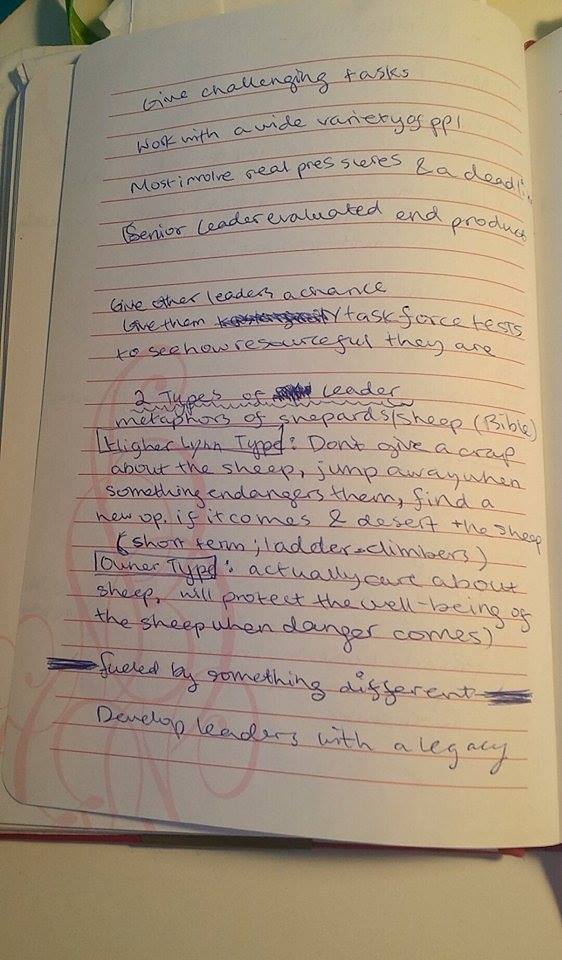 Give challenging tasks
Work with a wide variety of ppl
Most involve real pressures & a deadli
Senior leader evaluated end product
Give other leaders a chance
Give them /task force tests
to see how resourceful they are
2 Types of Leader
metaphors of shepards/sheep (Bible)
Higher Lynn Type: Dont give a crap
about the sheep, jump away when
something endangers them, find a
new op. if it comes & desert the sheep
(short term; ladder-climbers)
Owner Type: actually care about
sheep, will protect the well-being of
the sheep when danger comes)
fueled by something different
Develop leaders with a legacy